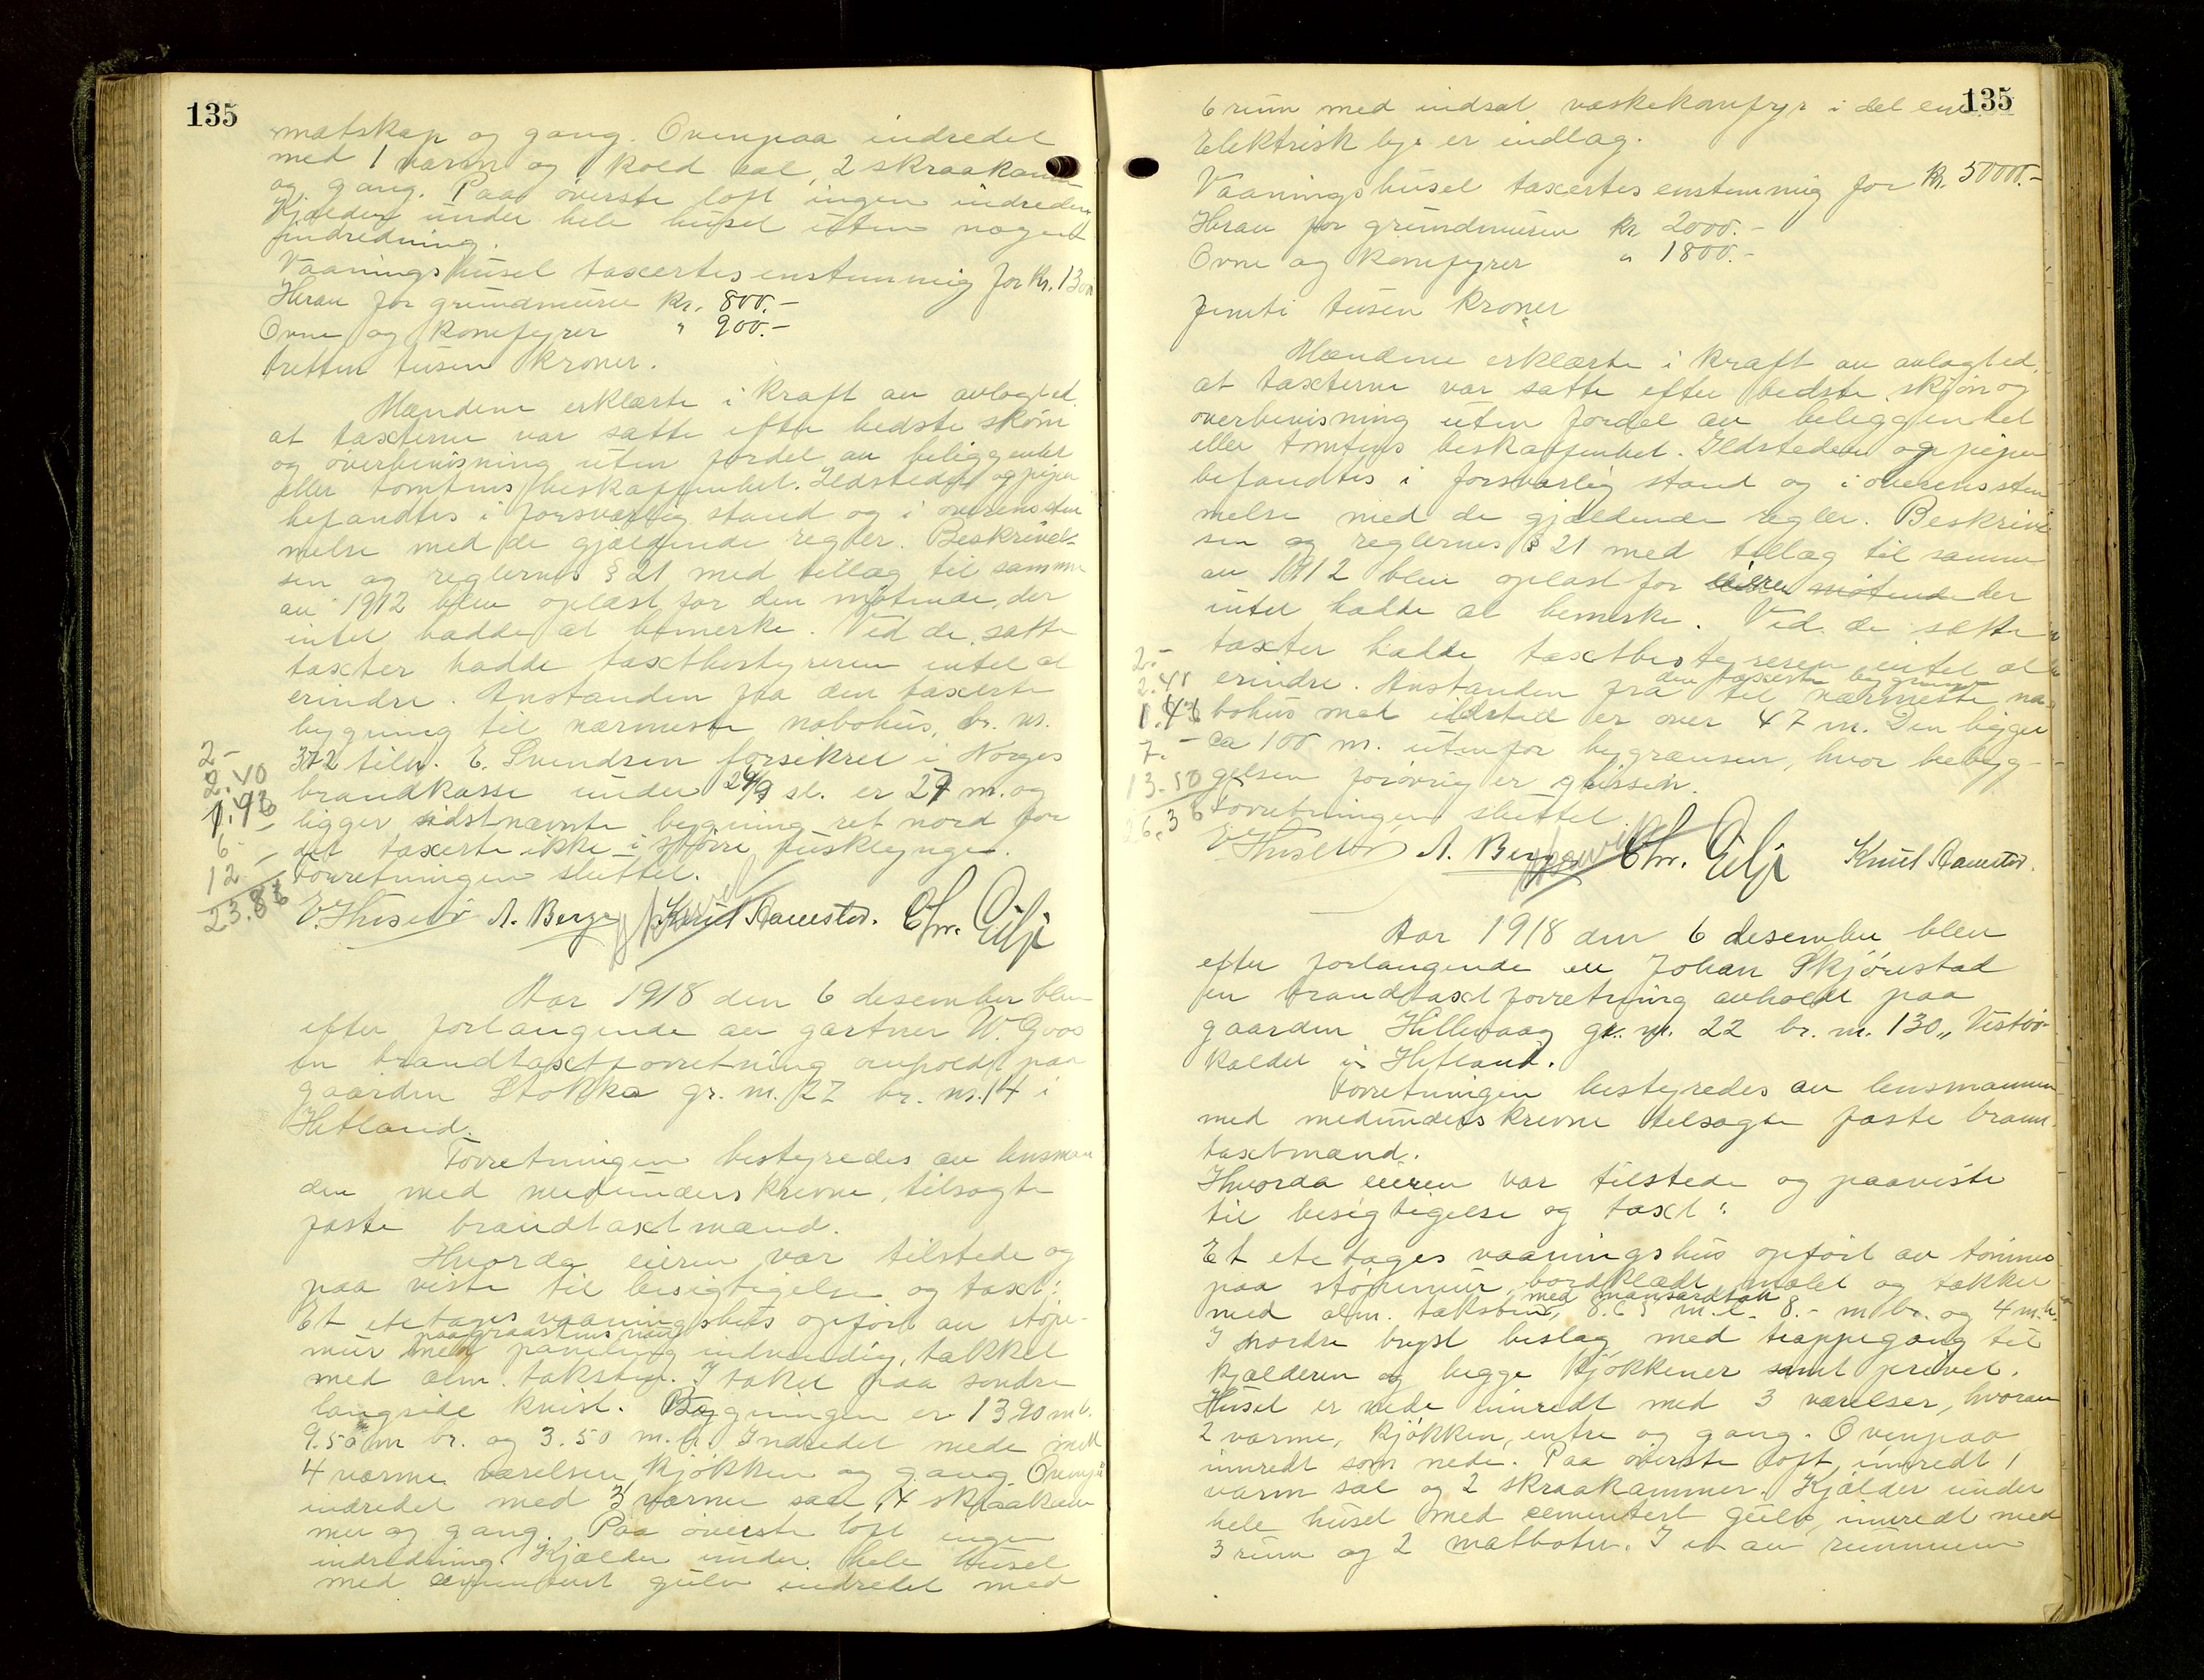 135
matskap og gang. Ovenpaa indredet
med 1 varm og 1 kold sal, 2 skraakammer
og gang. Paa överste loft ingen indredning
Kjælder under hele huset uten nogen
indredning.
Vaaningshuset taxertes enstemmig for kr. 13000
Herav for grundmuren kr. 800.-
Ovne og komfyrer " 900.-
tretten tusen kroner.
Mændene erklærte i kraft av avlagt ed
at taxterne var satte efter bedste skjön
og overbevisning uten fordel av beliggenhet
eller tomtens beskaffenhet. Ildstedet og piper
befandtes i forsvarlig stand og i overensstem
melse med de gjældende regler. Beskrivel-
sen og reglernes § 21 med tillæg til samme
av 1912 blev oplæst for den møtende, der
intet hadde at bemerke. Ved de satte
taxter hadde taxtbestyreren intet at
erindre. Avstanden fra den taxerte
bygning til nærmeste nabohus, br. nr.
372 tilh. E. Svendsen forsikret i Norges
brandkasse under 24/9 sl. er 27 m. og
ligger sidstnævnte bygning ret nord for
det taxerte ikke i större husklynge.
Forretningen sluttet.
2-
2.40
1.48
6.-
12.-
23.88
E. Thisetö A. Berge Knut Ramstad. Chr. Gilje
Aar 1918 den 6 desember blev
efter forlangende av gartner W. Goos
en brandtaxtforretning avholdt paa
gaarden Stokka gr. nr. 27 br. nr. 14 i
Hetland.
Forretningen bestyredes av lensman
den med medunderskrevne, tilsagte
faste brandtaxtmænd.
Hvorda eieren var tilstede og
paa viste til besigtigelse og taxt:
Et etetages vaaningshus opført av støpe-
paa graastens mur
mur med paneling indvendig, tækket
med alm. taksten. I taket paa söndre
langside kvist. Bygningen er 13.90 m l.
9.50 m br. og 3.50 m. h. Indredet nede med
4 varme værelser, kjøkken og gang. Ovenpaa
indredet med 3 varme saler, 4 skraakam
mer og gang. Paa överste loft ingen
indredning. Kjælder under hele huset
med cementert gulv indredet med
135
6 rum med indsat vaskekomfyr i det ene
Elektrisk lys er indlag.
Vaaningshuset taxertes enstemmig for kr. 50000.-
Herav for grundmuren kr 2000.-
Ovne og komfyrer " 1800.-
femti tusen kroner
Mændene erklærte i kraft av avlagt ed,
at taxterne var satte efter bedste skjön og
overbevisning uten fordel av beliggenhet
eller tomtens beskaffenhet. Ildstedene og piper
befandtes i forsvarlig stand og i overensstem
melse med de gjældende regler. Beskrivel
sen og reglernes § 21 med tillæg til samme
av 1912 blev oplæst for eieren møtende der
intet hadde at bemerke. Ved de satte
taxter hadde taxtbestyreren intet at
den taxerte bygning
erindre. Avstanden fra til nærmeste na-
bohus med ildsted er over 47 m. Den ligger
ca 100 m. utenfor bygrænsen, hvor bebyg-
gelsen forövrig er grissen.
Forretningen sluttet.
2.-
2.40
1.48
7.-
13.50
26.38
E. Thisetö A. Berge Chr. Gilje Knut Ramstad.
Aar 1918 den 6 desember blev
efter forlangende av Johan Skjörestad
en brandtaxtforretning avholdt paa
gaarden Hillevaag gr. nr. 22 br. nr. 130, Vestvo-
kaldet i Hetland.
Forretningen bestyredes av lensmannen
med medunderskrevne tilsagte faste brand
taxtmænd.
Hvorda eieren var tilstede og paaviste
til besigtigelse og taxt:
Et etetages vaaningshus opfört av tömmer
paa støpemur, bordklædt, malet og tækket
med mansardtak
med alm. taksten, 8.65 m. l. 8.- m br. og 4 m. h.
I nordre bryst beslag med trappegang til
kjælderen og begge kjøkkener samt privet.
Huset er nede innredt med 3 værelser, hvorav
2 varme, kjøkken, entre og gang. Ovenpaa
innredt som nede. Paa överste loft, innredt 1
varm sal og 2 skraakammer. Kjælder under
hele huset med cementert gulv, innredt med
3 rum og 2 matboder. I et av rummene